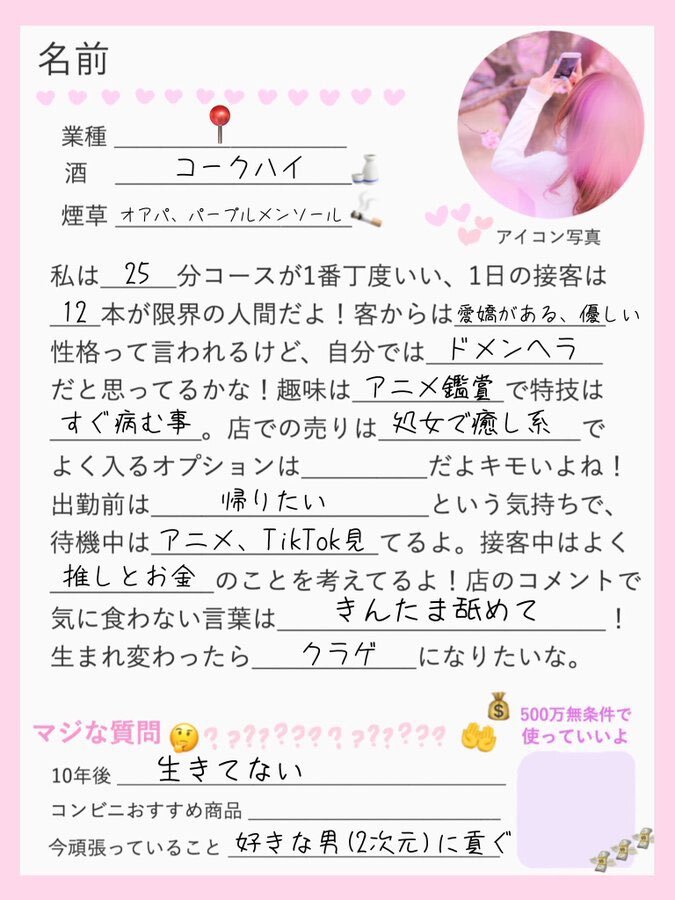 名前
業種
酒 コークハイ
煙草 オアパ、パープルメンソール
アイコン写真
私は25分コースが1番丁度いい、1日の接客は
12本が限界の人間だよ！客からは愛嬌がある、優しい
性格って言われるけど、自分ではドメンヘラ
だと思ってるかな！趣味はアニメ鑑賞で特技は
すぐ病む事。店での売りは処女で癒し系で
よく入るオプションは だよキモいよね！
出勤前は帰りたいという気持ちで、
待機中はアニメ、TikTok見てるよ。接客中はよく
推しとお金のことを考えてるよ！店のコメントで
気に食わない言葉はきんたま舐めて！
生まれ変わったらクラゲになりたいな。
マジな質問 ???????????????
500万無条件で
使っていいよ
10年後 生きてない
コンビニおすすめ商品
今頑張っていること 好きな男(2次元)に貢ぐ